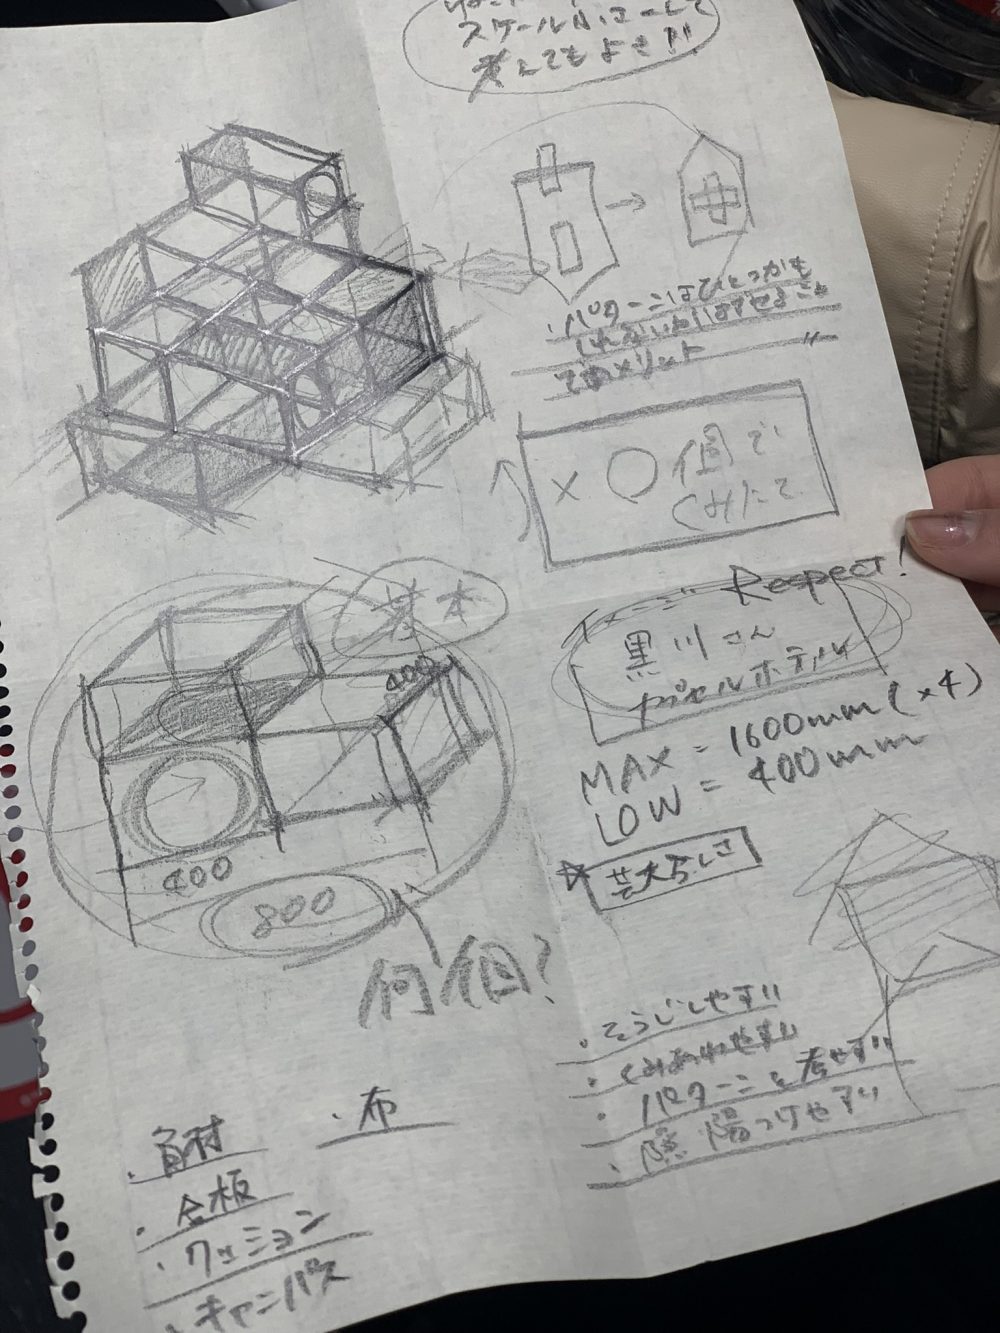 スケール小さーして
考えてもよき?!
・パターンはひとつかも
しれないがはてせよこゝ
てめメリット
×○個で
くみたて
基本
400
400
800
何個?
イメージ Respect!
黒川さん
カプセルホテル
MAX = 1600mm (×4)
LOW = 400mm
☆ 芸大らしさ
・そうじしやすい
・くみあわせやすい
・パターンを考やすい
・陰陽つけやすい
・角材
・布
・合板
・クッション
・キャンバス